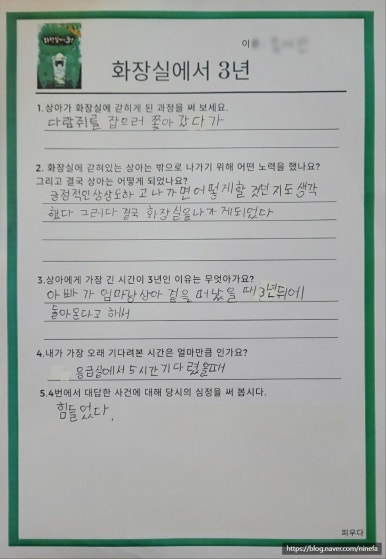 화장실에서 3년
이름:
화장실에서 3년
1.상아가 화장실에 갇히게 된 과정을 써 보세요.
다람쥐를 잡으러 쫓아 갔다가
2. 화장실에 갇혀있는 상아는 밖으로 나가기 위해 어떤 노력을 했나요?
그리고 결국 상아는 어떻게 되었나요?
긍정적인 상상도하고 나가면 어떻게할 것인지도 생각
했다 그러다 결국 화장실을나가게되었다
3.상아에게 가장 긴 시간이 3년인 이유는 무엇아가요?
아빠가 엄마랑상아 곁을 떠났을때 3년뒤에
돌아온다고 해서
4.내가 가장 오래 기다려본 시간은 얼마만큼 인가요?
응급실에서 5시간기다렸을때
5.4번에서 대답한 사건에 대해 당시의 심정을 써 봅시다.
힘들었다.
피우다
https://blog.naver.com/ninefs